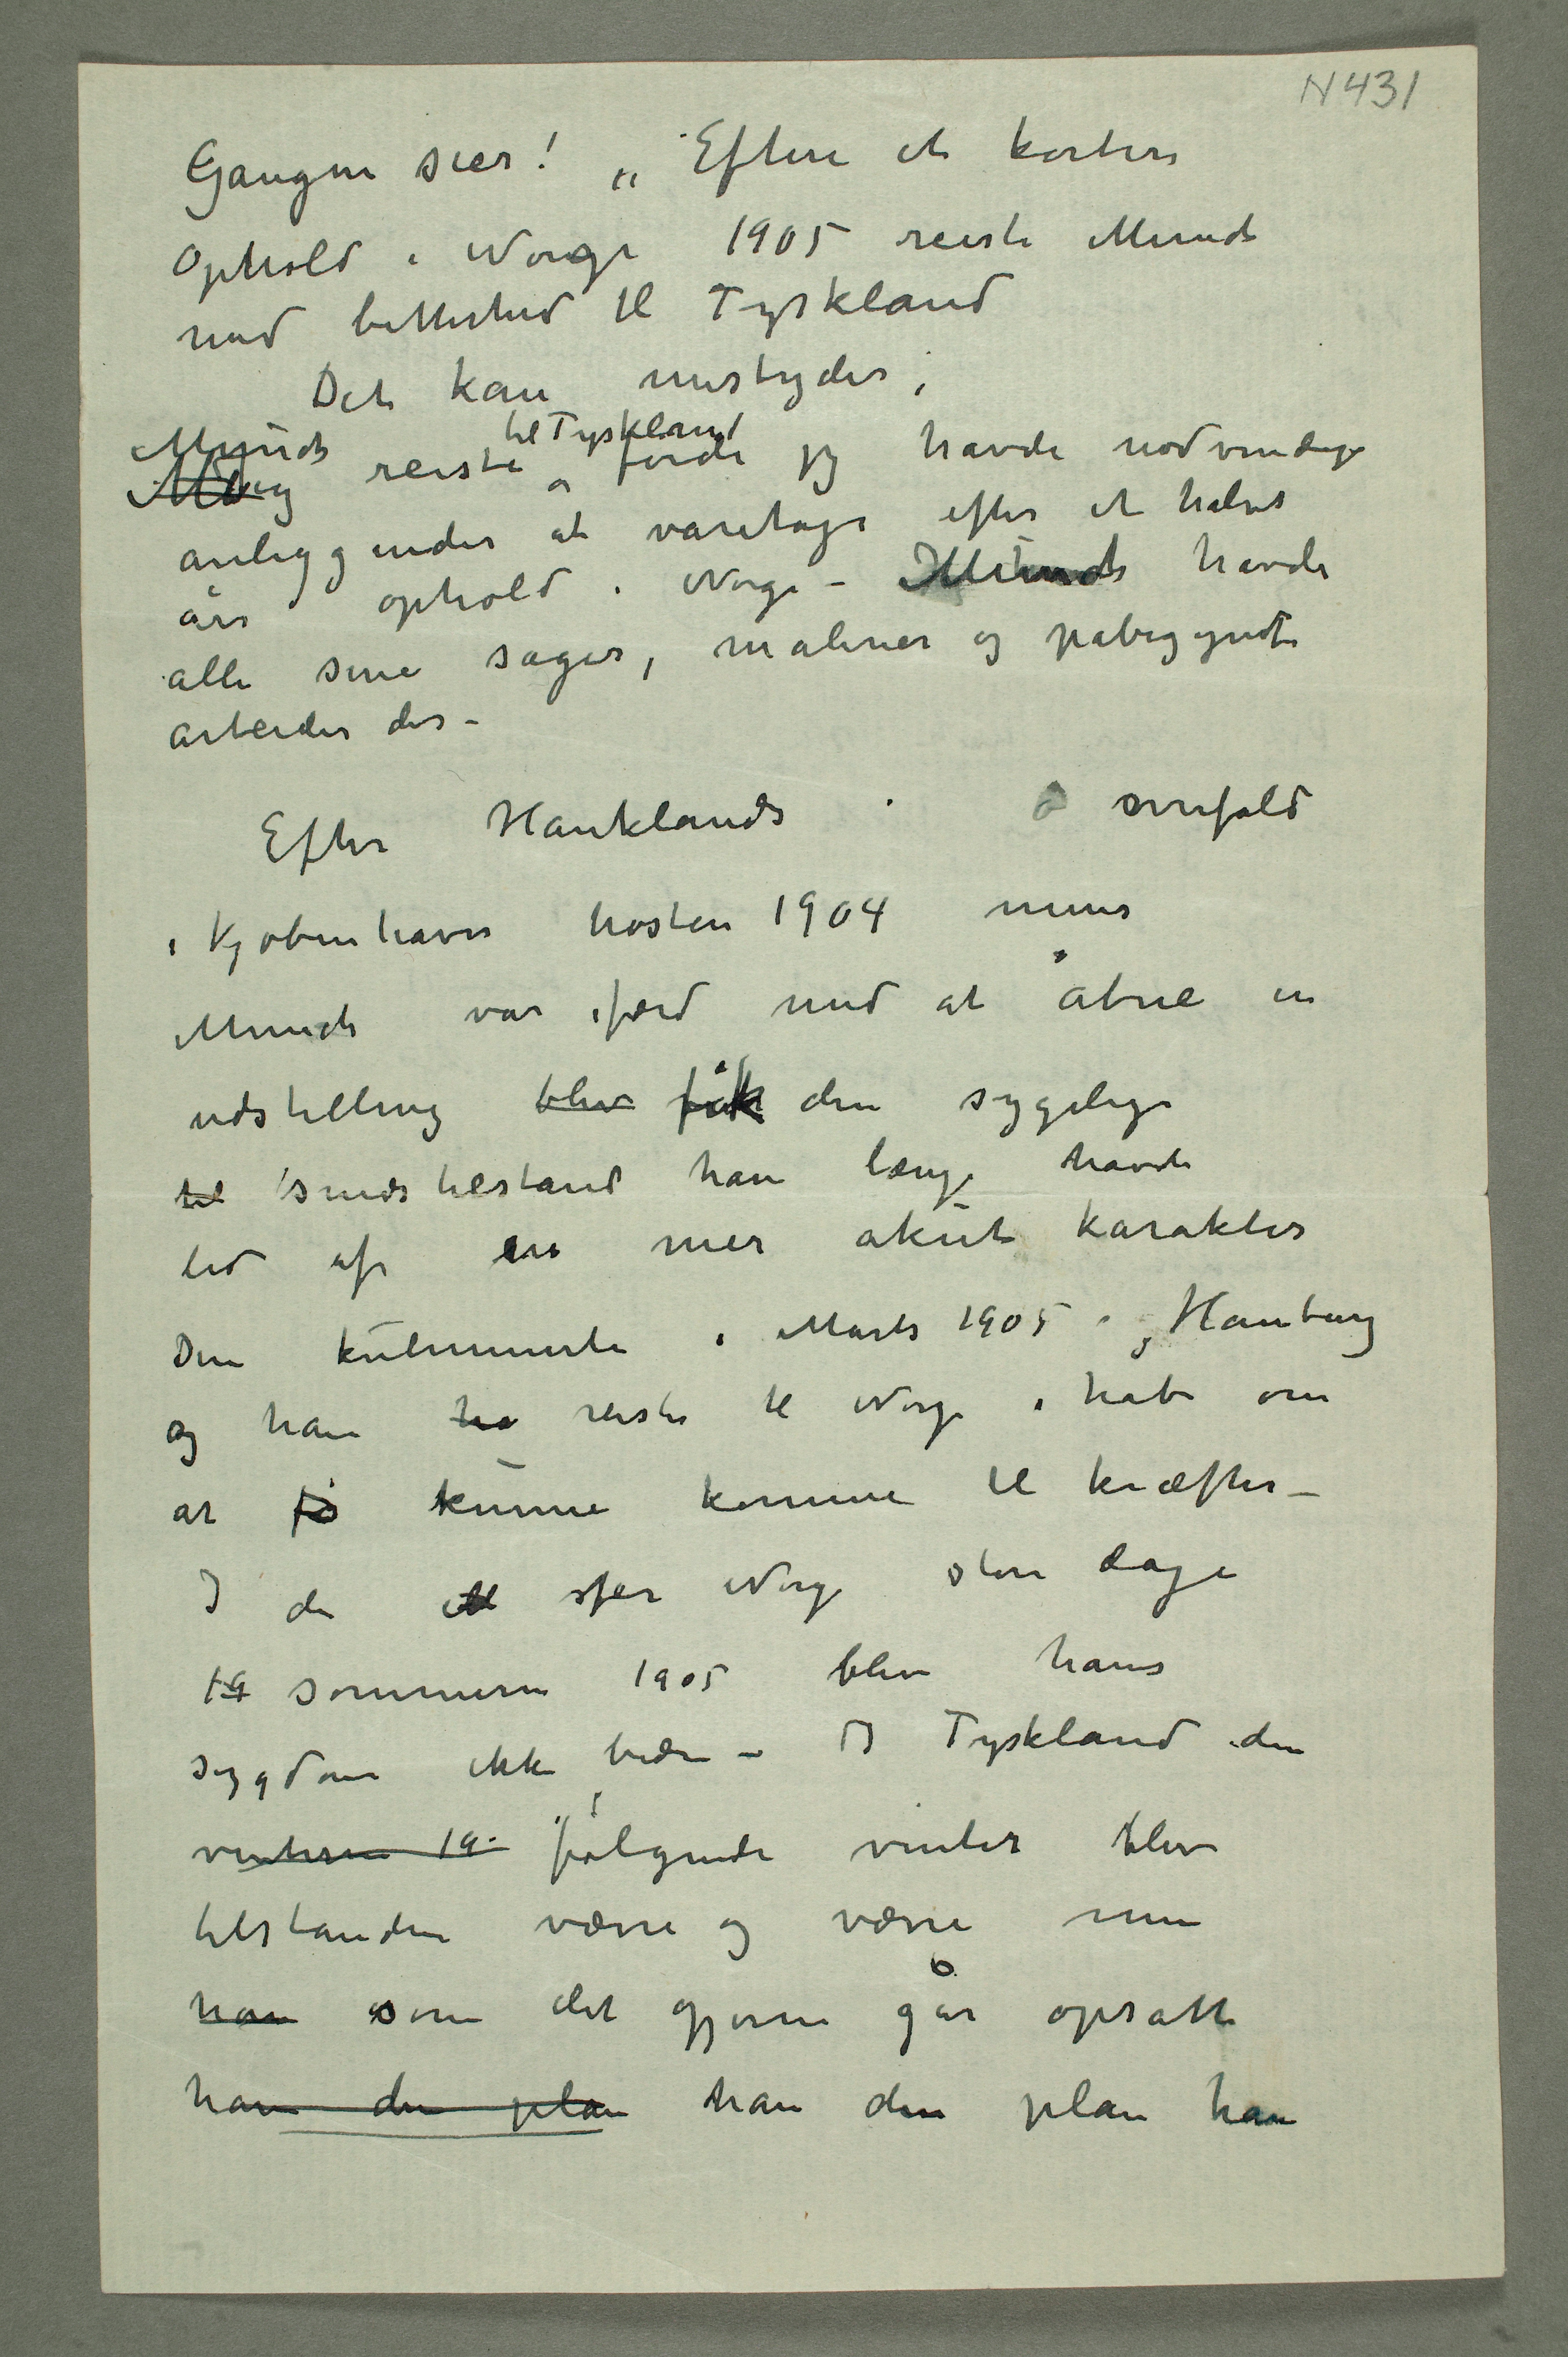 N 431
Gaugin sier! „Eftere et kortere
Ophold i Norge 1905 reiste Munch
med bitterhed til Tyskland
Det kan mistydes;
Munch reiste til Tyskland fordi jeg havde nødvendige
anliggender at varetage efter et halvt
års ophold i Norge – Munch havde
alle sine sager, malerier og påbegyndte
arbeider der –
Efter Hauklands overfald
i Kjøbenhavn høsten 1904 mens
Munch var ifærd med at åbne en
udstilling blev fik den sygelige
til sindstilstand han længe havde
lid af en mer akut karakter
Den kulminerte i Marts 1905 i Hamburg
og han ha reiste til Norge i håb om
at få kunne komme til kræfter –
I de for Norge store dage
19 sommeren 1905 blev hans
sygdom ikke bedre – I Tyskland den
vinteren 19 følgende vinter blev
tilstanden værre og værre men
han som det gjerne går opsatte
han den plan han den plan han